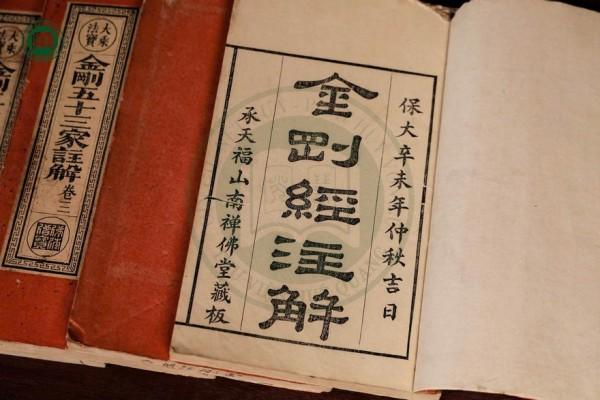 保大辛未年仲秋吉日
金剛經注解
承天福山南禪佛堂藏板
大乘
法寶
金剛五十三家註解